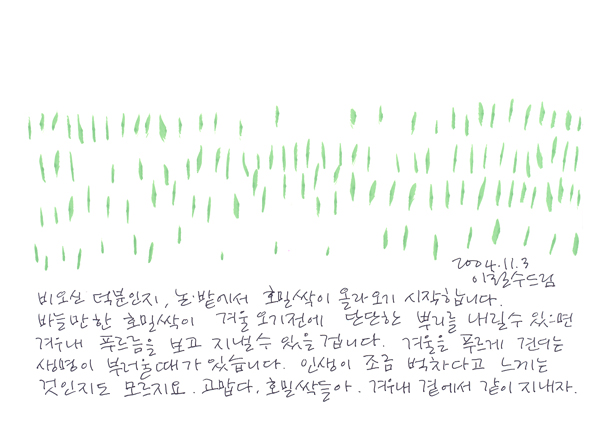 2004.11.3
이철수드림
비오신 덕분인지, 논·밭에서 호밀싹이 올라오기 시작합니다.
바늘만한 호밀싹이 겨울 오기전에 단단한 뿌리를 내릴수 있으면
겨우내 푸르름을 보고 지낼 수 있을 겁니다. 겨울을 푸르게 견디는
생명이 부러울 때가 있습니다. 인생이 조금 벅차다고 느끼는
것인지도 모르지요. 고맙다, 호밀싹들아. 겨우내 곁에서 같이 지내자.